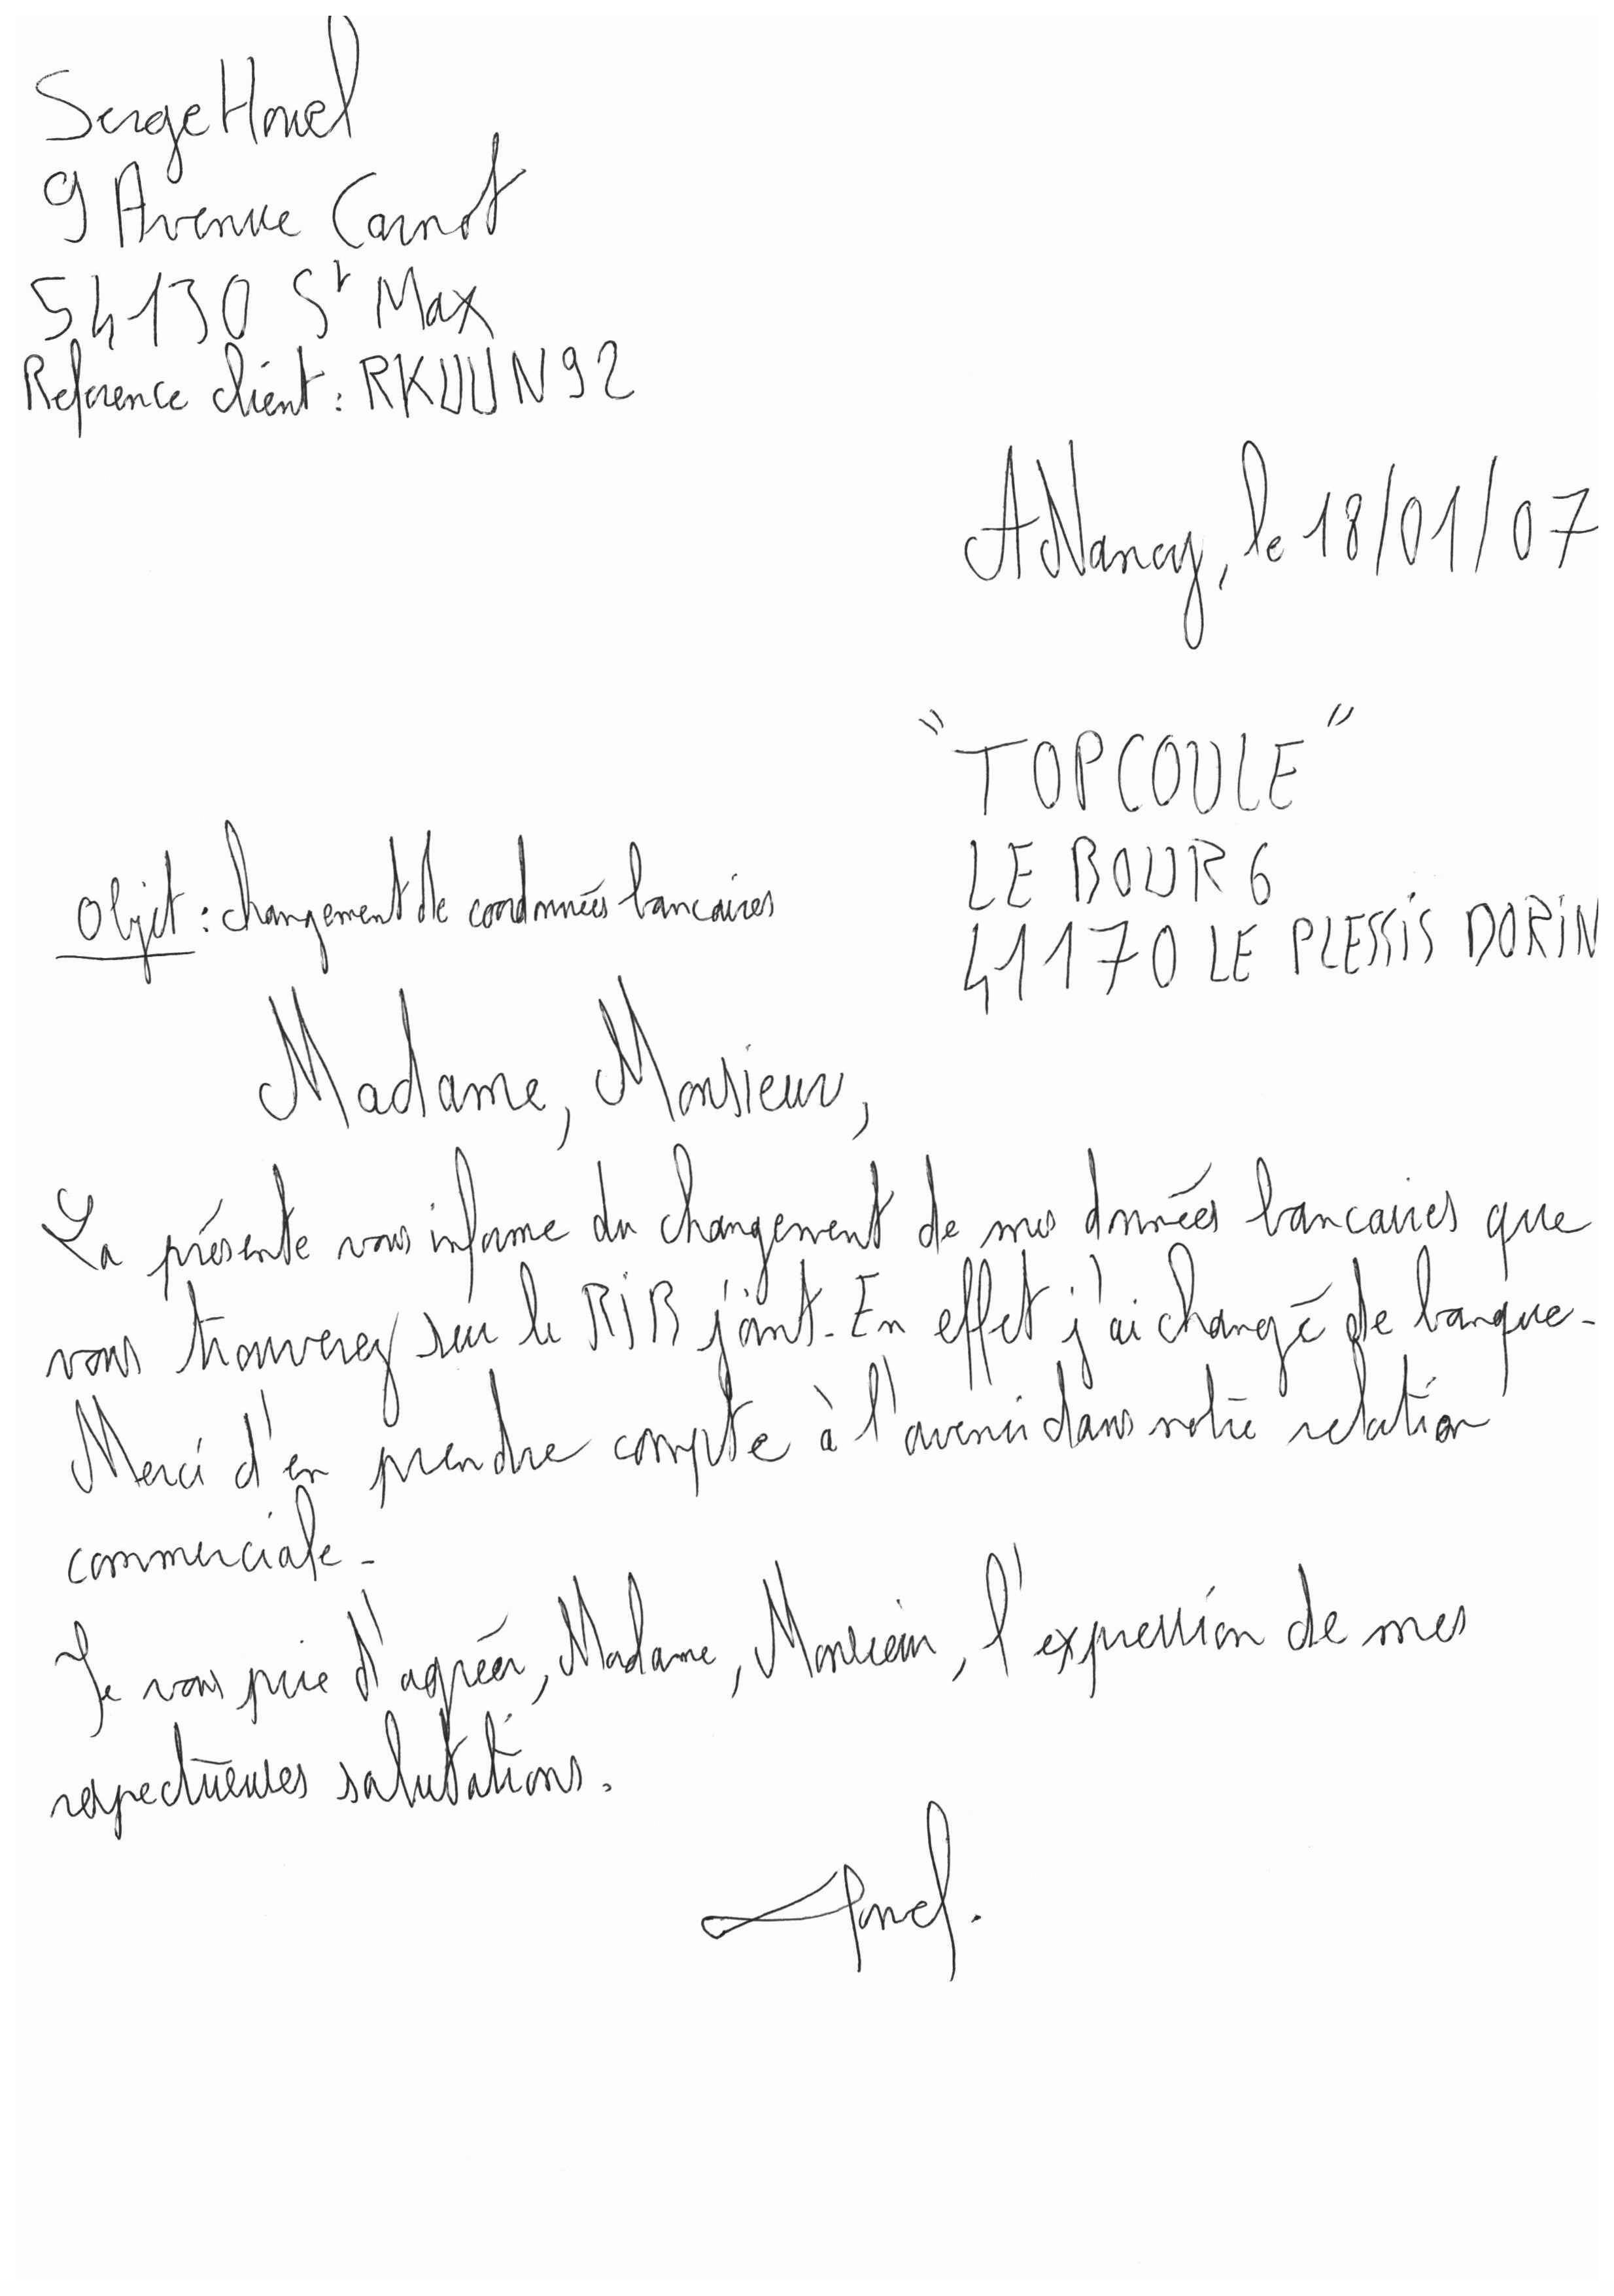 Serge Houel
9 Avenue Carnot
54130 St Max
Reference client : RKUUN92
A Nancy, le 18/01/07
"TOPCOULE"
LE BOURG
41170 LE PLESSIS DORIN
Objet : changement de coordonnées bancaires
Madame, Monsieur,
La présente vous informe du changement de mes données bancaires que
vous trouverez sur le RIB joint. En effet j'ai changé de banque.
Merci d'en prendre compte à l'avenir dans notre relation
commerciale.
Je vous prie d'agréer, Madame, Monsieur, l'expression de mes
respectueuses salutations.
Houel.